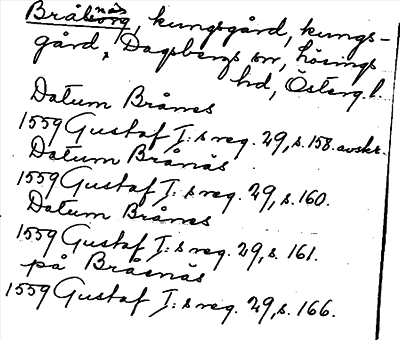 Bråborg, kungsgård, kungs-
näs
gård, Dagsbergs sn, Lösings
hd, Österg.l.
Datum Brånes
1559 Gustaf I:s reg. 29, s. 158. avskr.
Datum Brånäs
1559 Gustaf I:s reg. 29, s. 160.
Datum Brånes
1559 Gustaf I:s reg. 29, s. 161.
på Bråsnäs
1559 Gustaf I:s reg. 29, s. 166.